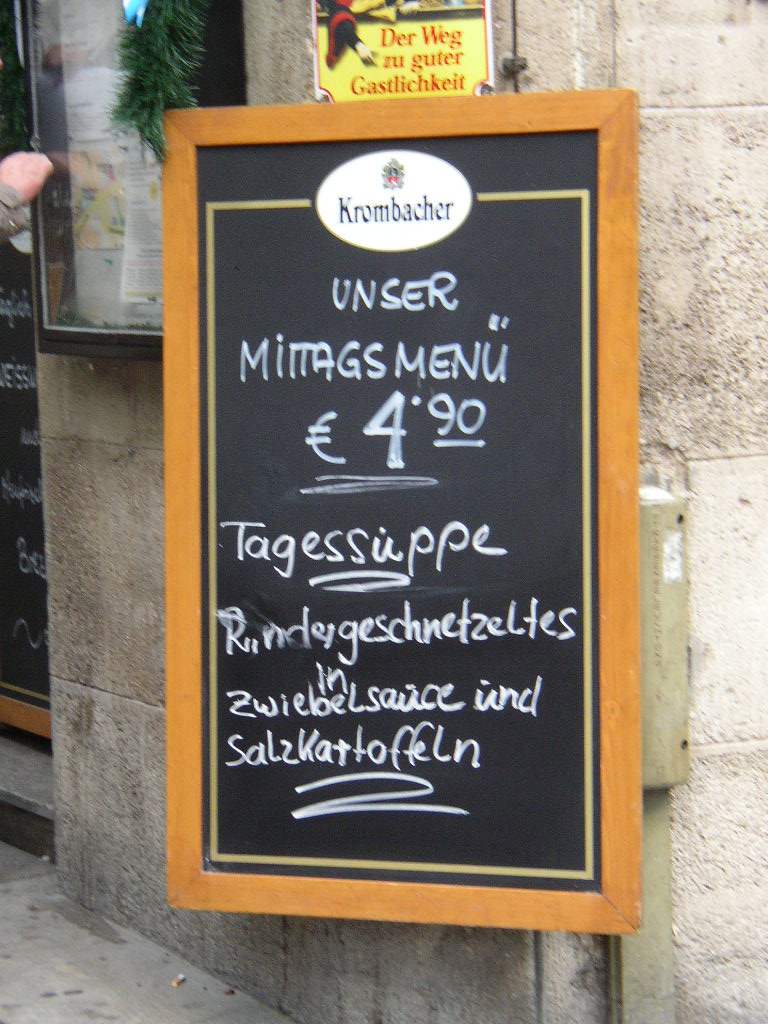 Der Weg
zu guter
Gastlichkeit
Krombacher
UNSER
MITTAGSMENÜ
€ 4.90
Tagessuppe
Rindergeschnetzeltes
in
Zwiebelsauce und
Salzkartoffeln